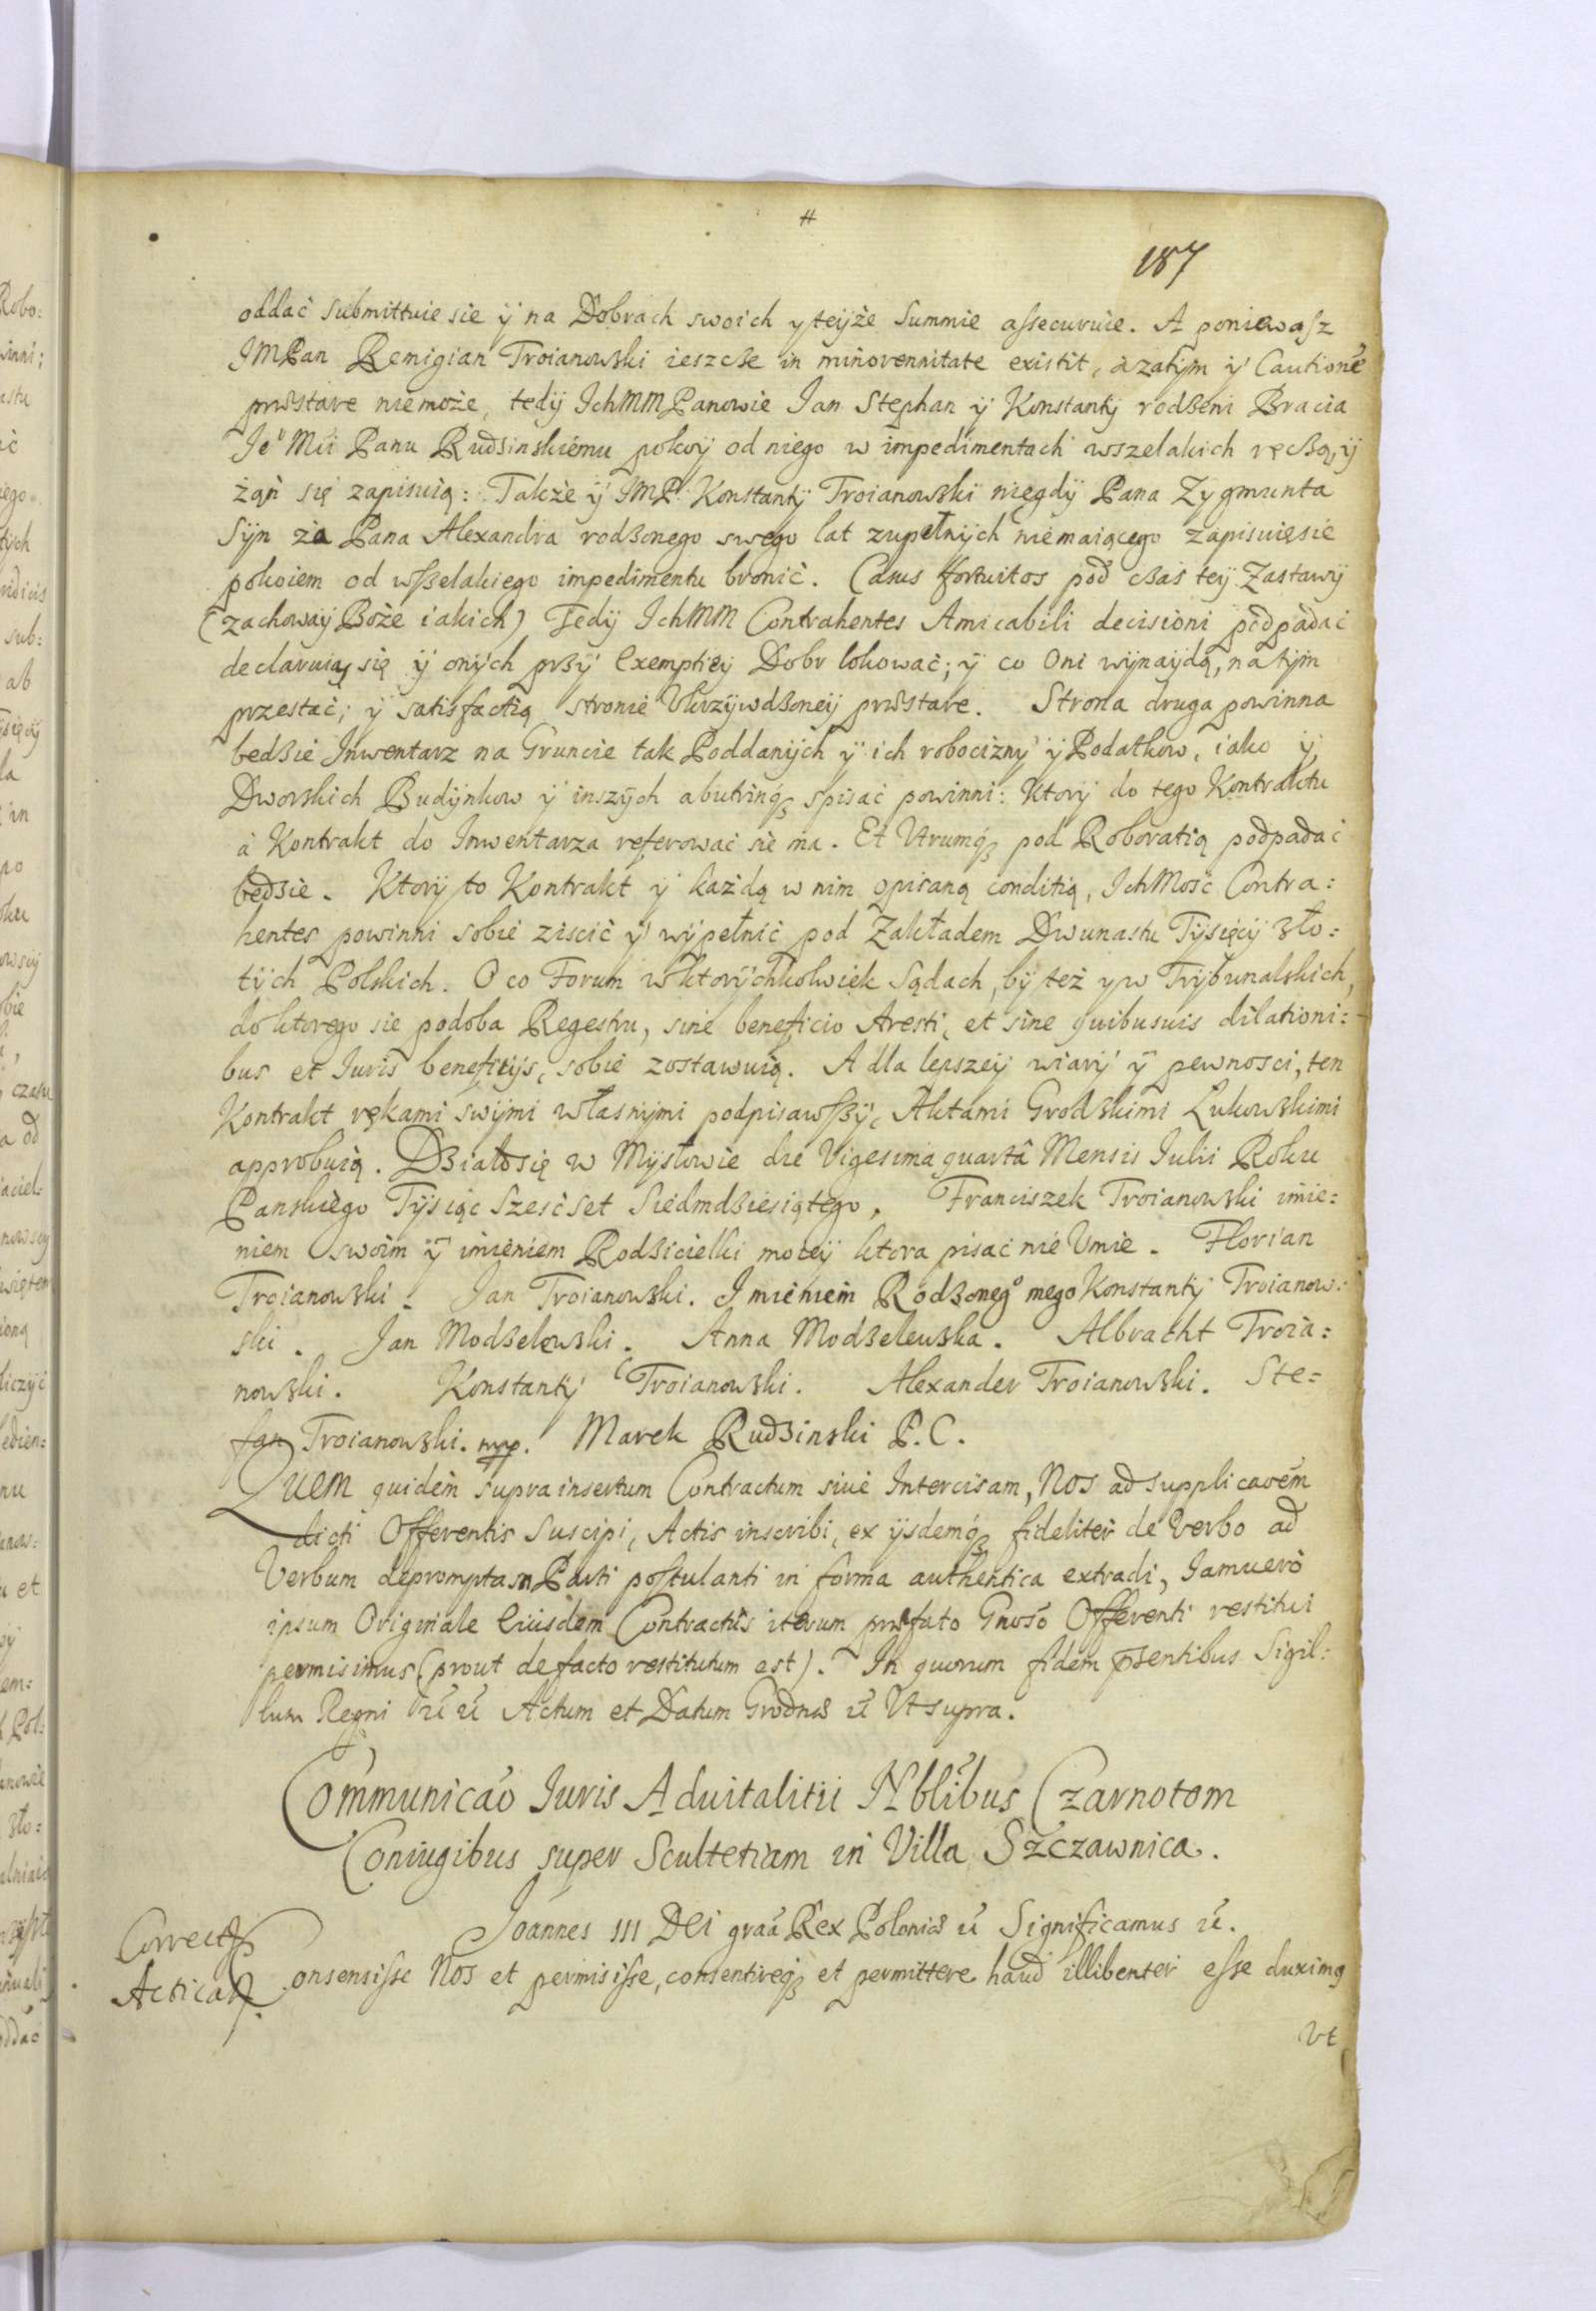 187
oddać submittuie sie ÿ na Dobrach swoich y teÿże Summie assecuruie. A poniewasz
IMPan Remigian Troianowski ieszcze in minorennitate existit, a zatÿm ÿ Cautionē
præstare niemoże, tedÿ IchMM Panowie Ian Stephan ÿ Konstantÿ rodzeni Bracia
Je° Mći Panu Rudzinskiemu pokoÿ od niego w impedimentach wszelakich ręczą, ÿ
zań się zapisuią: Także ÿ IMP. Konstantÿ Troianowski niegdÿ Pana Zygmunta
Sÿn za Pana Alexandra rodzonego swego lat zupełnÿch niemaiącego zapisuię sie
pokoiem od wszelakiego impedimentu bronić. Casus fortuitos pod czas teÿ Zastawÿ
(zachowaÿ Boże iakich) Tedÿ IchMM Contrahentes Amicabili decisioni podpadać
declaruią się ÿ onÿch przÿ exemptiÿ Dobr lokować; ÿ co oni wÿnaÿdą, na tÿm
przestać; ÿ satisfactią stronie Vkrzÿwdzoneÿ præstare. Strona druga powinna
bedzie Inwentarz na Gruncie tak Poddanÿch ÿ ich robociznÿ ÿ Podatkow, iako ÿ
Dworskich Budÿnkow ÿ inszÿch abutrinq₃ spisać powinni: Ktorÿ do tego Kontraktu
à Kontrakt do Inwentarza referować sie ma. Et Vtrumq₃ pod Roboratią podpadać
bedzie. Ktorÿ to Kontrakt ÿ każdą w nim opisaną conditią, IchMość Contra:
hentes powinni sobie ziscić ÿ wÿpełnić pod Zakładem Dwunastu Tÿsięcÿ zło:
tÿch Polskich. O co Forum w ktorÿchkolwiek Sądach, bÿ też y w Trÿbunalskich,
do ktorego sie podoba Regestru, sine beneficio Aresti, et sine quibusuis dilationi:
bus et Iuris beneficijs, sobie zostawuią. A dla lepszeÿ wiarÿ ÿ pewnosci, ten
Kontrakt rękami swÿmi własnÿmi podpisawszÿ, Aktami Grodskimi Łukowskimi
approbuią. Działo się w Mÿsłowie die Vigesima quartâ Mensis Iulii Roku
Panskiego Tÿsiąc Szescset Siedmdziesiątego. Franciszek Troianowski imie:
niem swoim ÿ imieniem Rodzicielki moieÿ ktora pisać nie Vmie. Florian
Troianowski. Jan Troianowski. Imieniem Rodzoneg° mego Konstantÿ Troianow:
ski. Jan Modzelewski. Anna Modzelewska. Albracht Troia:
nowski. Konstantÿ Troianowski. Alexander Troianowski. Ste=
fan Troianowski. mp. Marek Rudzinski P.C.
Quem quidem supra insertum Contractum siue Intercisam, Nos ad supplicaoēm
dicti Offerentis Suscipi, Actis inscribi, ex ijsdemq₃ fideliter de Verbo ad
Verbum depromptam Parti postulanti in forma authentica extradi, Iamuerò
ipsum Originale Eiusdem Contractûs iterum præfato Gnoso Offerenti restitui
permisimus (prout de facto restitutum est). In quorum fidem p̄sentibus Sigil:
lum Regni &c̄ &c̄ Actum et Datum Grodnæ &c̄ Vt supra.
Communicāo Iuris Aduitalitii Nblibus Czarnotom
Coniugibus super Scultetiam in Villa Szczawnica.
Joannes III Dei graā Rex Poloniæ &c̄ Significamus &c̄.
Correct
Acticat
onsensisse Nos et permisisse, consentireq₃ et permittere haud illibenter esse duximq
Vt